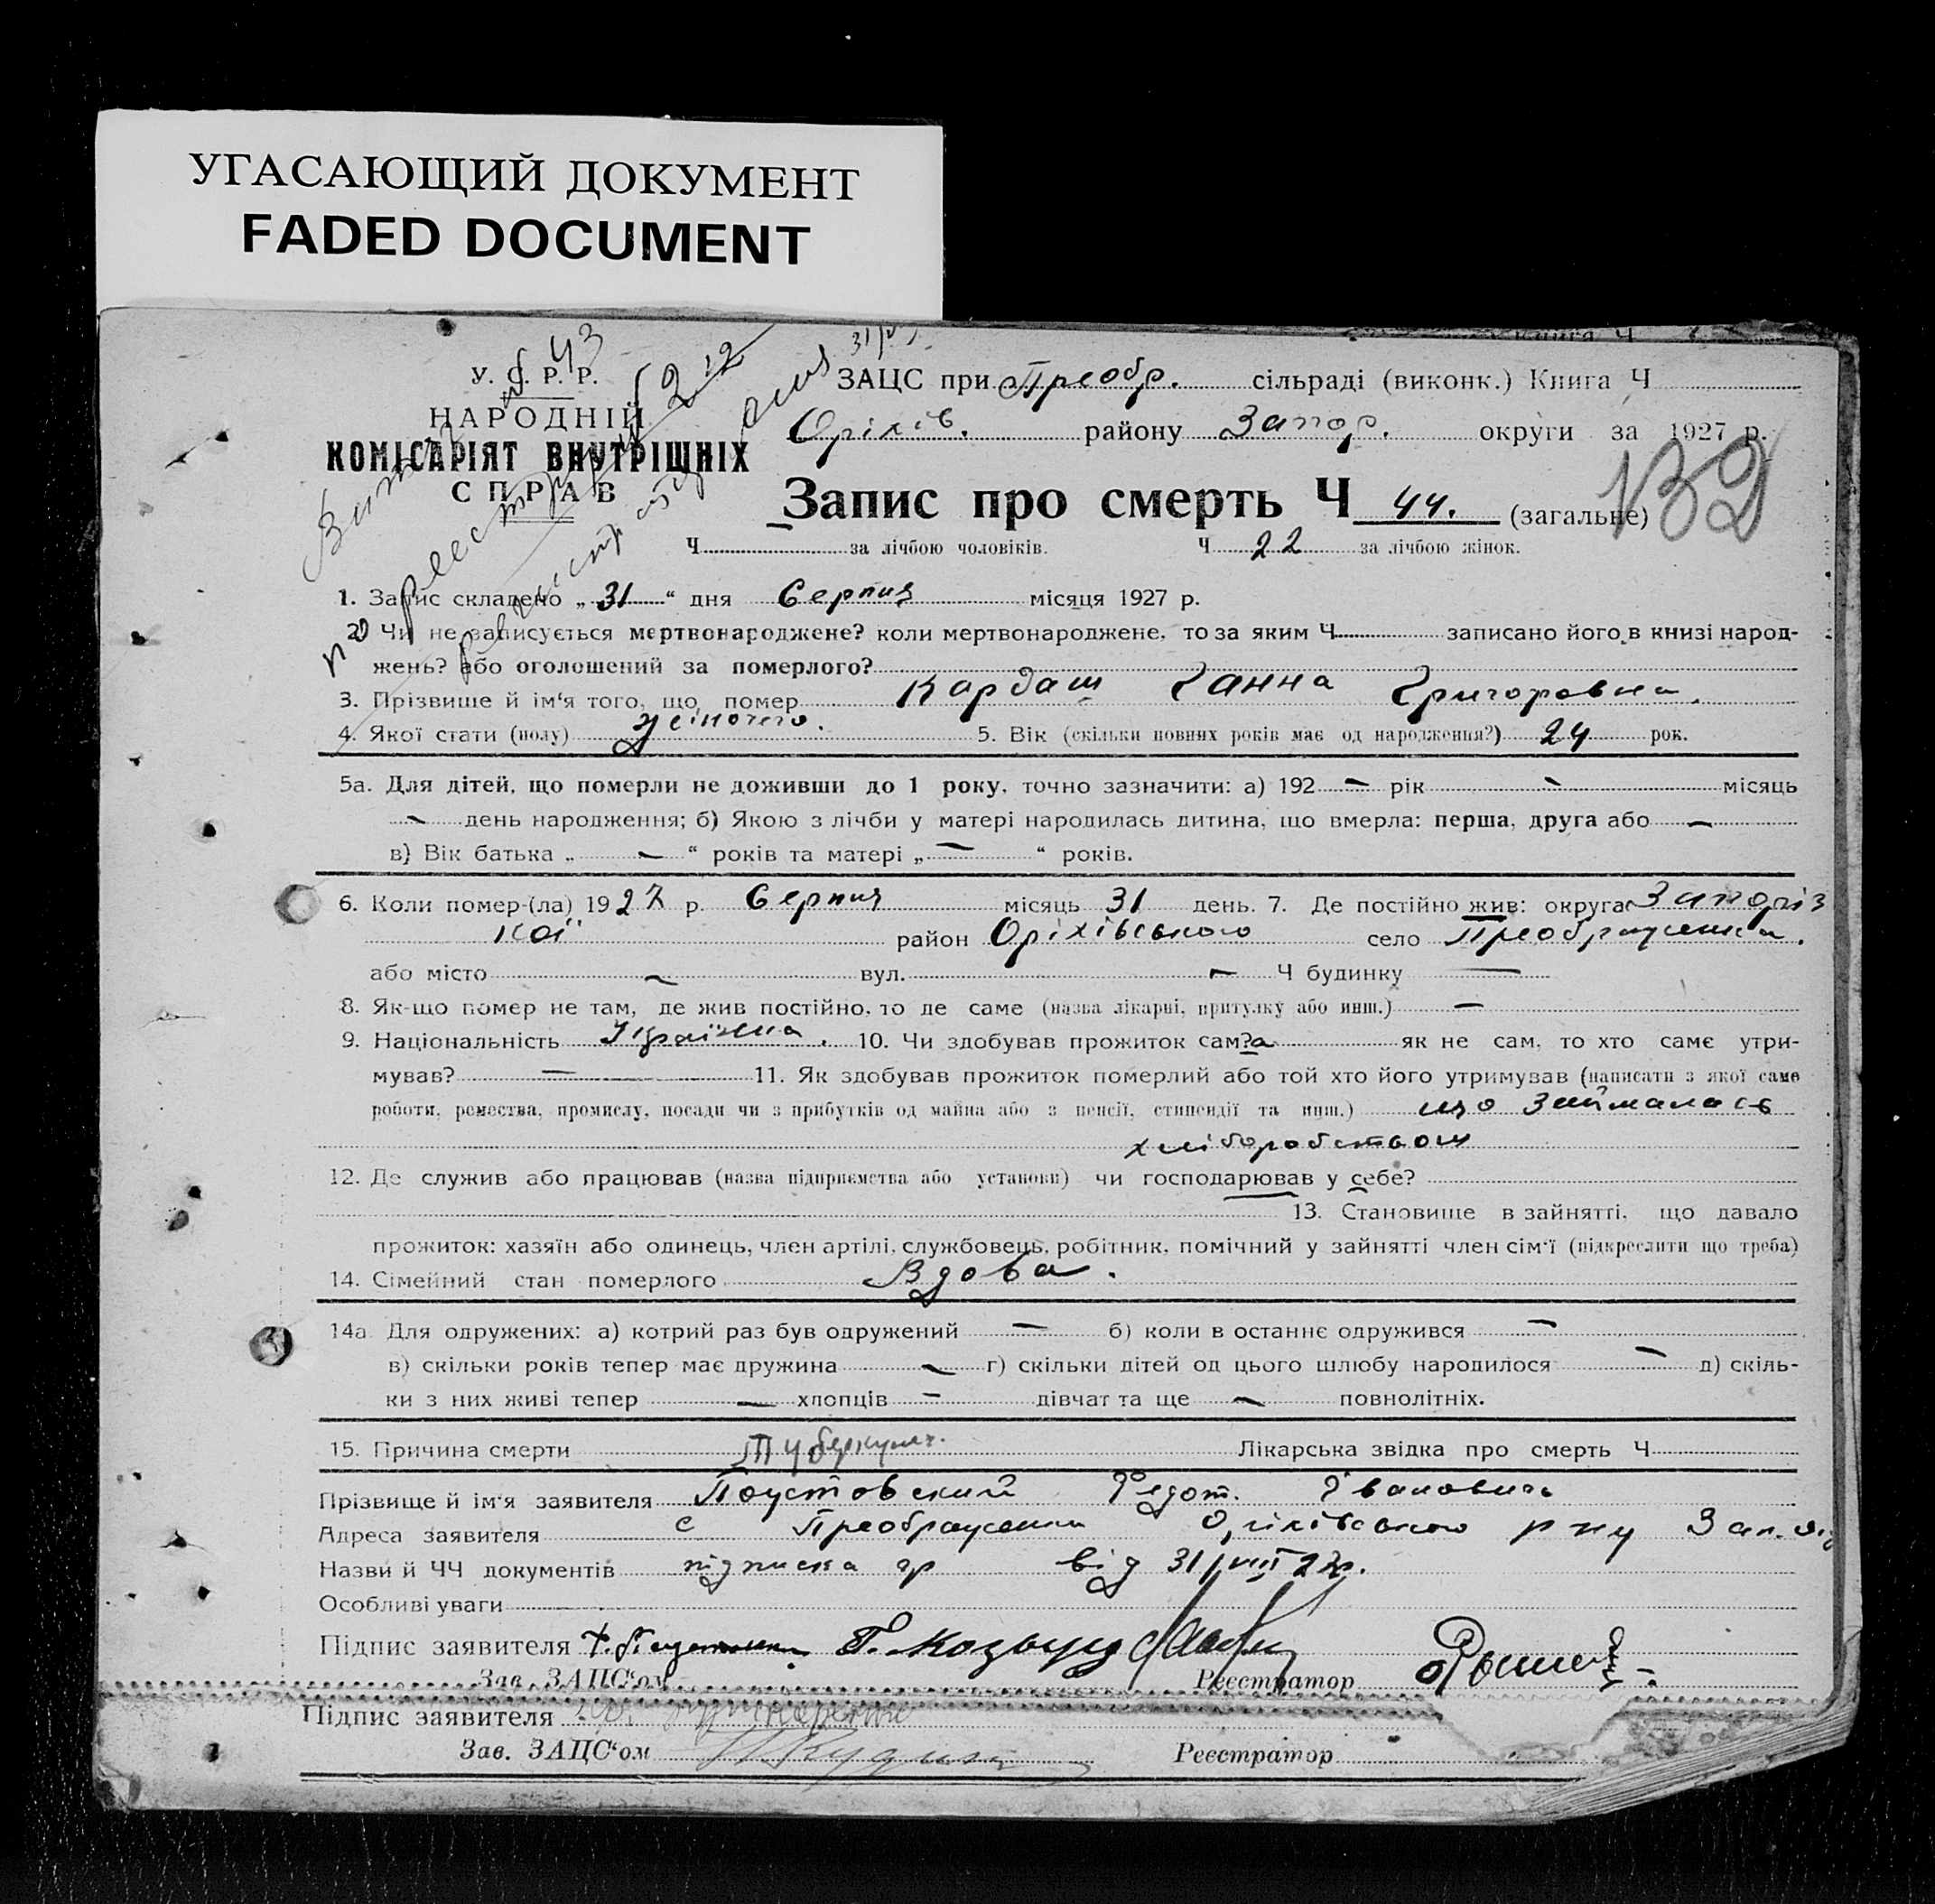 УГАСАЮЩИЙ ДОКУМЕНТ
FADED DOCUMENT
У. С. Р. Р.
НАРОДНІЙ
КОМІСАРІЯТ ВНУТРІШНІХ
СПРАВ
ЗАЦС при Преобр. сільраді (виконк.) Книга Ч
Оріхів. району Запор. округи за 1927 р.
Запис про смерть Ч 44. (загальне) 132
Ч за лічбою чоловіків. Ч 22 за лічбою жінок.
1. Запис складено „ 31 “ дня Серпня місяця 1927 р.
2) Чи не записується мертвонароджене? коли мертвонароджене, то за яким Ч записано його в книзі народ-
жень? або оголошений за померлого?
3. Прізвище й ім'я того, що помер Кардаш Ганна Григоровна.
4. Якої стати (полу) жіночого. 5. Вік (скільки повних років має од народження?) 24 рок.
5а. Для дітей, що померли не доживши до 1 року, точно зазначити: а) 192 – рік – місяць
– день народження; б) Якою з лічби у матері народилась дитина, що вмерла: перша, друга або –
в) Вік батька „ – “ років та матері „ – “ років.
6. Коли помер-(ла) 1927 р. Серпня місяць 31 день. 7. Де постійно жив: округа Запоріз
кої район Оріхівського село Преображенка.
або місто – вул. – Ч будинку –
8. Як-що помер не там, де жив постійно, то де саме (назва лікарні, притулку або инш.) –
9. Національність Українка. 10. Чи здобував прожиток сам? а як не сам, то хто саме утри-
мував? – 11. Як здобував прожиток померлий або той хто його утримував (написати з якої саме
роботи, ремества, промислу, посади чи з прибутків од майна або з пенсії, стипендії та инш.) що займалась
хліборобством
12. Де служив або працював (назва підприємства або установи) чи господарював у себе?
13. Становище в зайнятті, що давало
прожиток: хазяїн або одинець, член артілі, службовець, робітник, помічний у зайнятті член сім'ї (підкреслити що треба)
14. Сімейний стан померлого Вдова.
14а Для одружених: а) котрий раз був одружений – б) коли в останнє одружився –
в) скільки років тепер має дружина – г) скільки дітей од цього шлюбу народилося – д) скіль-
ки з них живі тепер – хлопців – дівчат та ще – повнолітніх.
15. Причина смерти Туберкульз. Лікарська звідка про смерть Ч
Прізвище й ім'я заявителя Поустовский Федот Іванович
Адреса заявителя с Преображенки Оріхівського р ну Зап.
Назви й ЧЧ документів підписка гр від 31/VIII 27р.
Особливі уваги
Підпис заявителя
Зав. ЗАЦС'ом Реєстратор
Підпис заявителя
Зав. ЗАЦС'ом Реєстратор